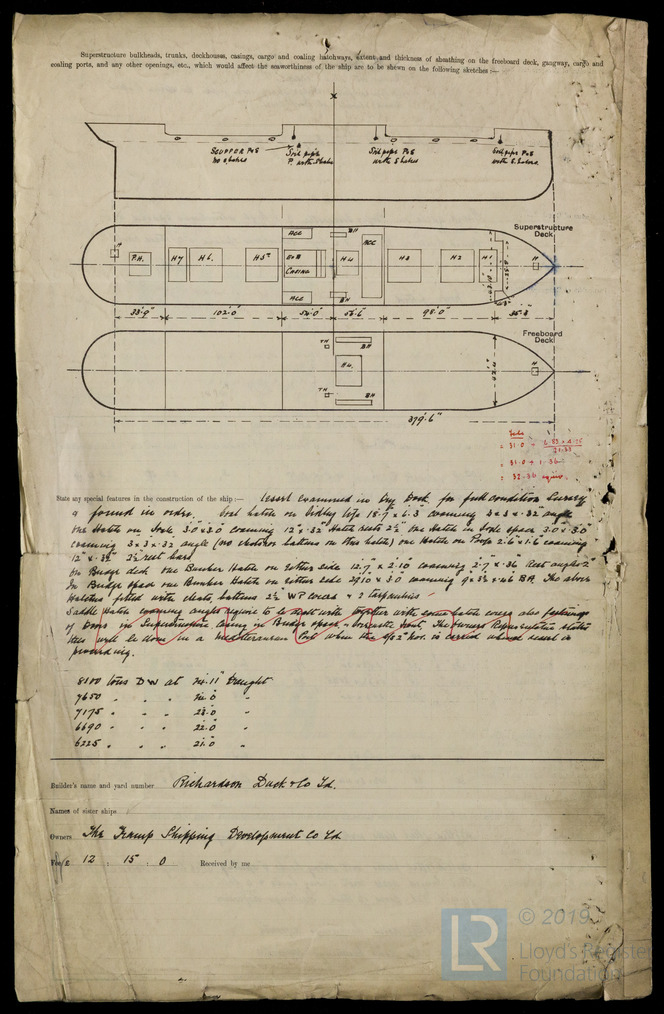 Superstructure bulkheads, trunks, deckhouses, casings, cargo and coaling hatchways, extent and thickness of sheathing on the freeboard deck, gangway, cargo and
coaling ports, and any other openings, etc., which would affect the seaworthiness of the ship are to be shewn on the following sketches :—
SCUPPER P&S
no
Soil pipe
P. with
Soil pipes P&S
with
Soil pipe P&S
with
Superstructure
Deck
H
P.H.
H7
H6
H5
ACC
E&B
Casing
ACC
BH
H4
BH
ACC
H3
H2
H1
H
33'.9"
102'.0
54'.0
56'.6
98'.0
35'.3
Freeboard
Deck
TH
BH
H4
TH
BH
H
379'.6"
= 31.0 +
= 31.0 + 1.36
= 32.36
State any special features in the construction of the ship :— Vessel examined in Dry Dock for condition Survey
& found in order. hatch on 18'.7" x 6'.3 coaming 3 x 3 x .32" angle
One Hatch on 3'.0" x 3'.0 coaming 12" x .32" Hatch rests 2½" One Hatch in space 3'.0 x 3'.0"
coaming 3 x 3 x .32 angle (no battens on this hatch) one Hatch on Poop 2'.6" x 1'.6 coaming
12" x rest bars
On Bridge deck one Bunker Hatch on either side 12'.7 x 2'.10 coaming 2'.7 x .36 Rest angle 2"
In Bridge space one Bunker Hatch on either side x 3'.0 coaming 9 x x .46 BA. The above
Hatches fitted with cleats, battens 2½" WP covers & 2 tarpaulins
Saddle Hatch coaming angles require to be with together with some hatch covers also fastenings
of Doors in Superstructure Casing in Bridge space & front, The Owners Representative states
this will be done in a Mediterranean Port when the Nov. is carried where vessel is
proceeding.
8100 tons DW at 24'.11" draught
7650 " " " 24'.0 "
7175 " " " 23'.0 "
6690 " " " 22'.0 "
6225 " " " 21'.0 "
Builder's name and yard number Richardson Duck & Co Ld.
Names of sister ships
Owners The Tramp Shipping Development Co Ld
Fee £ 12 : 15 : 0 Received by me
LR © 2019
Lloyd's Register
Foundation